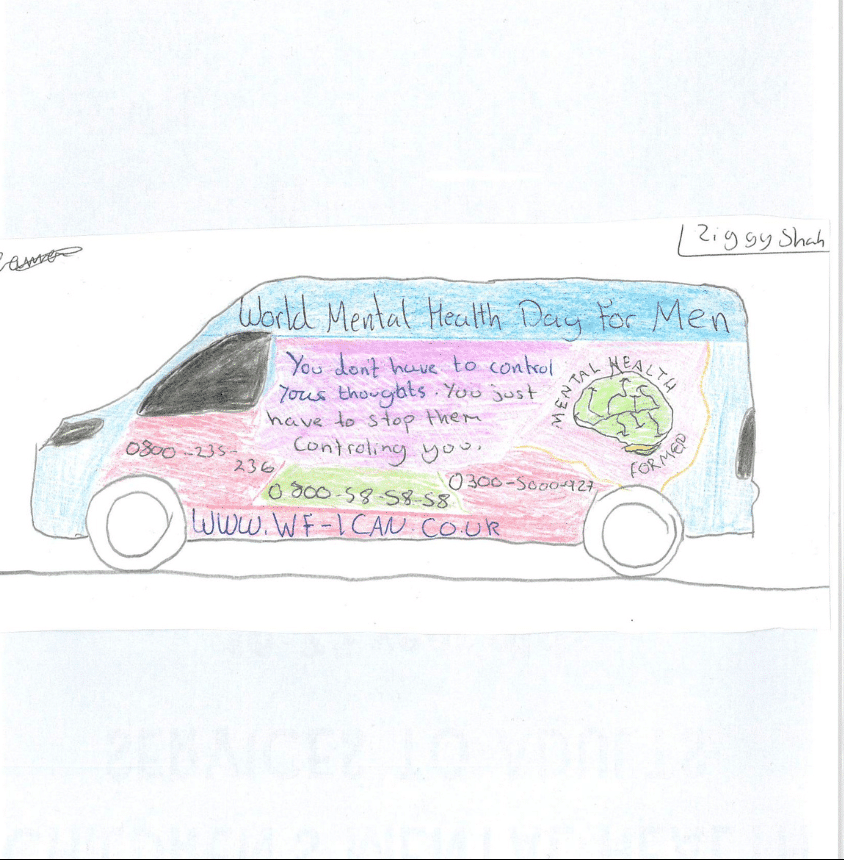 Ziggy Shah
World Mental Health Day For Men
You don't have to control
your thoughts. You just
have to stop them
Controling you.
MENTAL HEALTH
FORMED
0800-235-
236
0800-58-58-58
0300-5000-927
WWW.WF-ICAN.CO.UK
SERVICES TO ADULTS